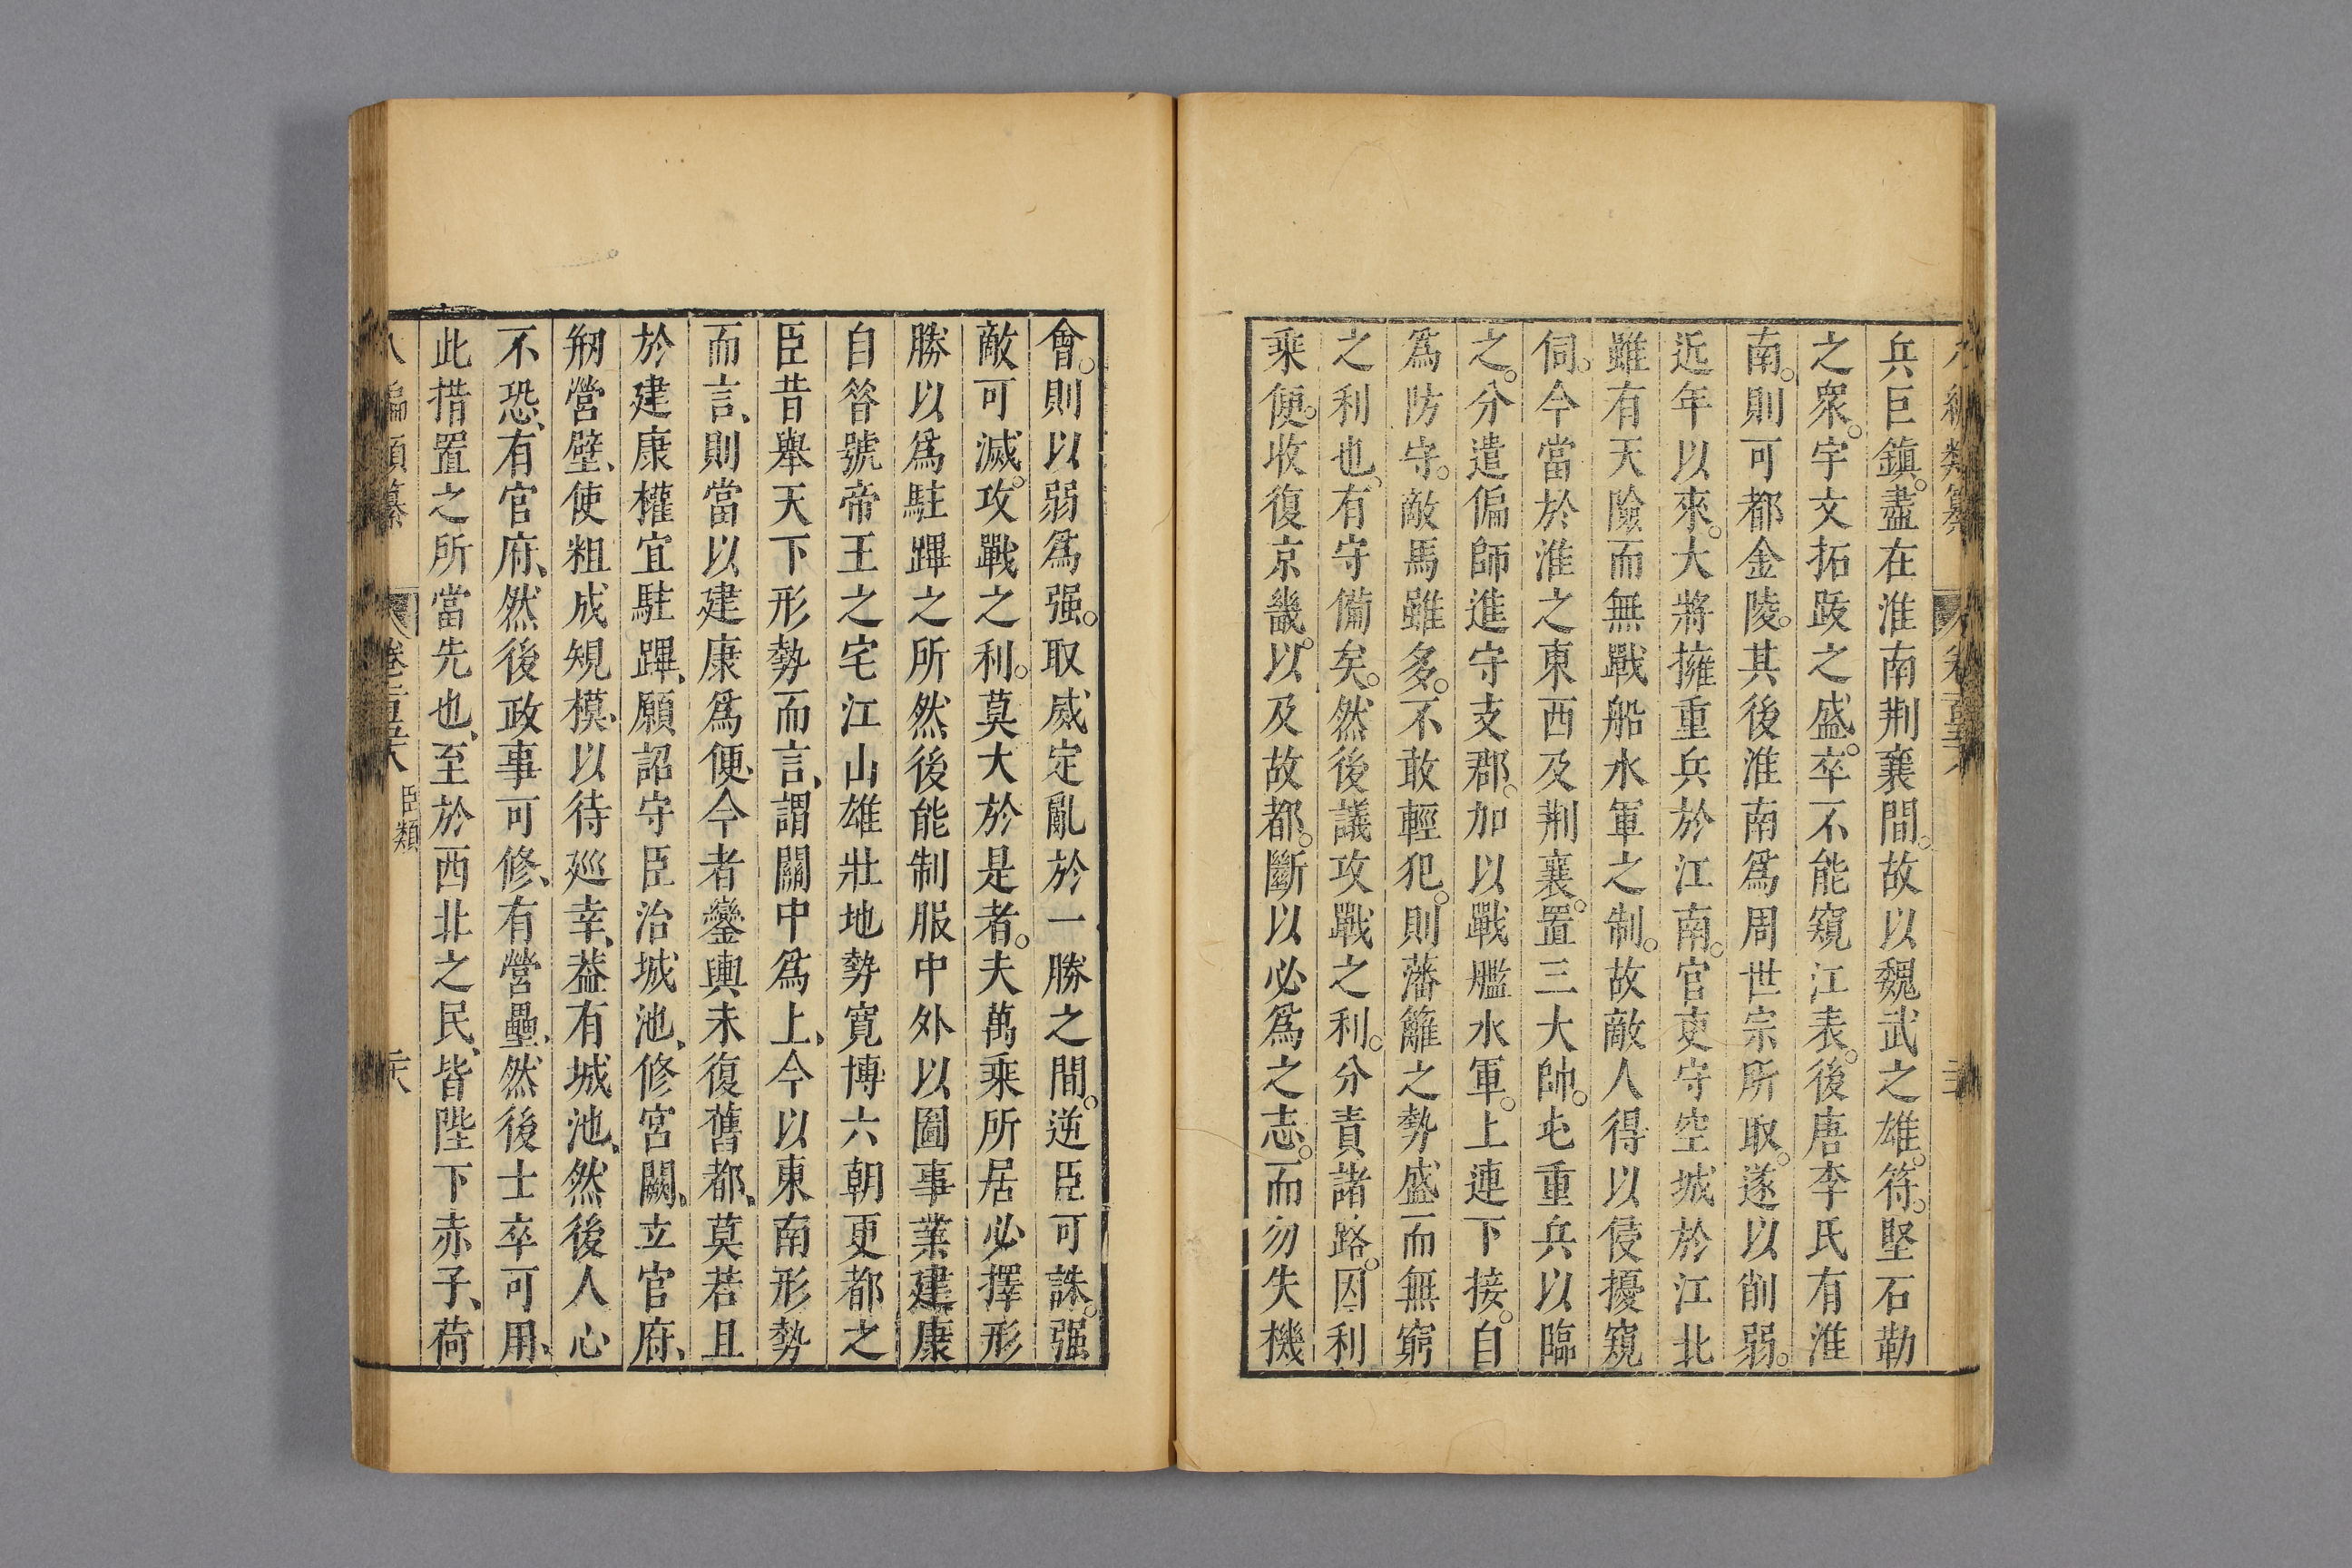 兵巨鎮。盡在淮南荆襄間。故以魏武之雄。符。堅石勒
之衆。宇文拓跋之盛。卒不能窺江表。後唐李氏有淮
南。則可都金陵。其後淮南爲周世宗所取。遂以削弱。
近年以來。大將擁重兵於江南。官吏守空城於江北
雖有天險而無戰船水軍之制。故敵人得以侵擾窺
伺。今當於淮之東西及荆襄。置三大帥。屯重兵以臨
之。分遣偏師進守支郡。加以戰艦水軍。上連下接。自
爲防守。敵馬雖多。不敢輕犯。則藩籬之勢盛而無窮
之利也。有守備矣。然後議攻戰之利。分責諸路。因利
乘便。收復京畿。以及故都。斷以必爲之志。而勿失機
會。則以弱爲强。取威定亂於一勝之間。逆臣可誅。强
敵可滅。攻戰之利。莫大於是者。夫萬乘所居必擇形
勝以爲駐蹕之所然後能制服中外以圖事業建康
自昝號帝王之宅江山雄壯地勢寬博六朝更都之
臣昔舉天下形勢而言、謂關中爲上、今以東南形勢
而言、則當以建康爲便、今者鑾輿未復舊都、莫若且
於建康權宜駐蹕、願詔守臣治城池、修宮闕、立官府、
剏營壁、使粗成規模、以待廵幸、葢有城池、然後人心
不恐、有官府、然後政事可修、有營壘、然後士卒可用、
此措置之所當先也、至於西北之民、皆陛下赤子、荷
八編類纂 卷 臣類